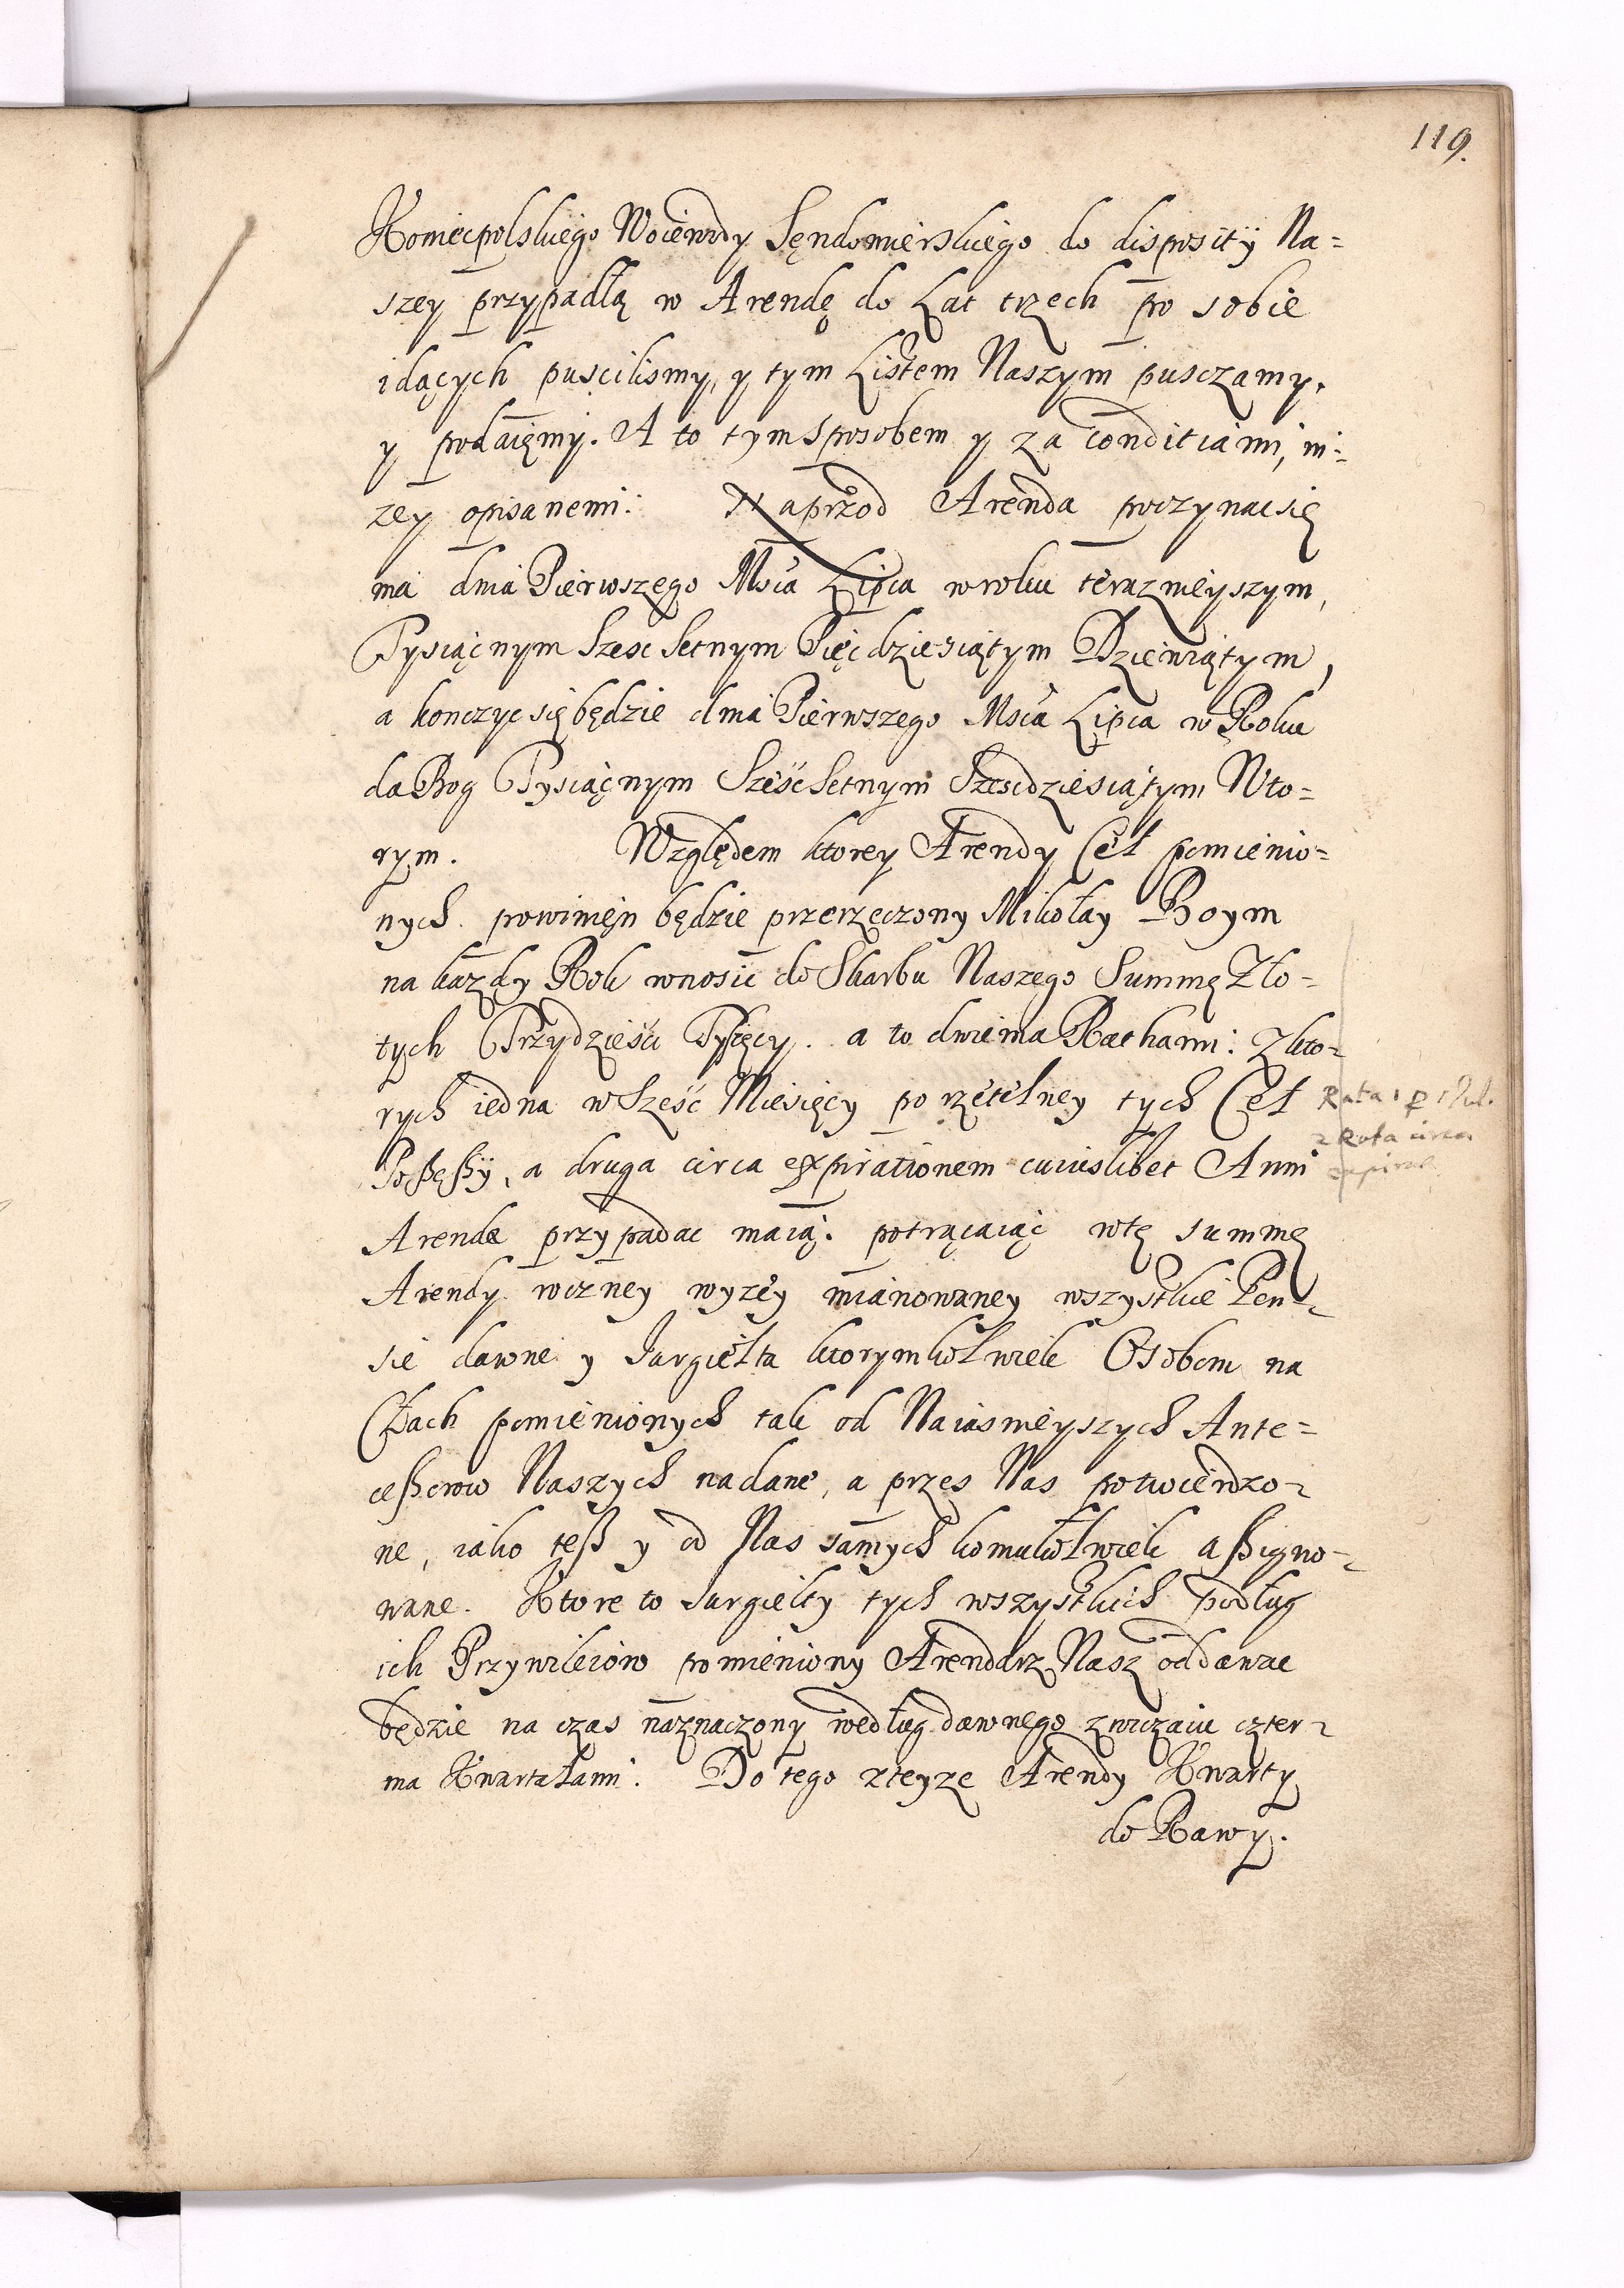 119.
Koniecpolskiego Woiewody Sęndomierskiego do disposityi Na=
szey przypadłą w Arendę do Lat trzech po sobie
idących puscilismy, y tym Listem Naszym pusczamy,
y podaięmy. A to tym sposobem y za conditiami, ni=
zey opisanemi: Naprzod Arenda poczynac się
ma dnia Pierwszego Msca Lipca w roku teraznieyszym,
Tysiącnym Szesc Setnym Pięcdziesiątym Dziewiątym,
a konczyc się będzie dnia Pierwszego Msca Lipca w Roku
da Bog Tysiącnym Sześć Setnym Szescdziesiątym Wto=
rym. Względem ktorey Arendy Ceł pomienio=
nych powinięn będzie przerzęczony Mikołay Boym
na kazdy Rok wnosić do Skarbu Naszego Summę Zło=
tych Trzydzieści Tysięcy. a to dwiema Rathami: Z kto=
rych iedna w Sześć Miesięcy po rzetelney tych Ceł
Poßeßyi, a druga circa expirationem cuiuslibet Anni
Arendæ przypadac maią: potrącaiąc w tę summę
Arendy roczney wyzey mianowaney wszystkie Pen=
sie dawne y Jurgiełta ktorymkolwiek Osobom na
Cłach pomienionych tak od Naiasnieyszych Ante=
ceßorow Naszych nadane, a przes Nas potwierdzo=
ne, iako teß y od Nas samych komukolwiek aßigno=
wane. Ktore to Jurgielty tych wszystkich podług
ich Przywileiow pomieniony Arendarz Nasz oddawac
będzie na czas naznaczony według dawnego zwyczaiu czter=
ma Kwartałami. Do tego z teyze Arendy Kwarty
do Rawy.
Rata 1 p 1 Jul.
2 Rata circa